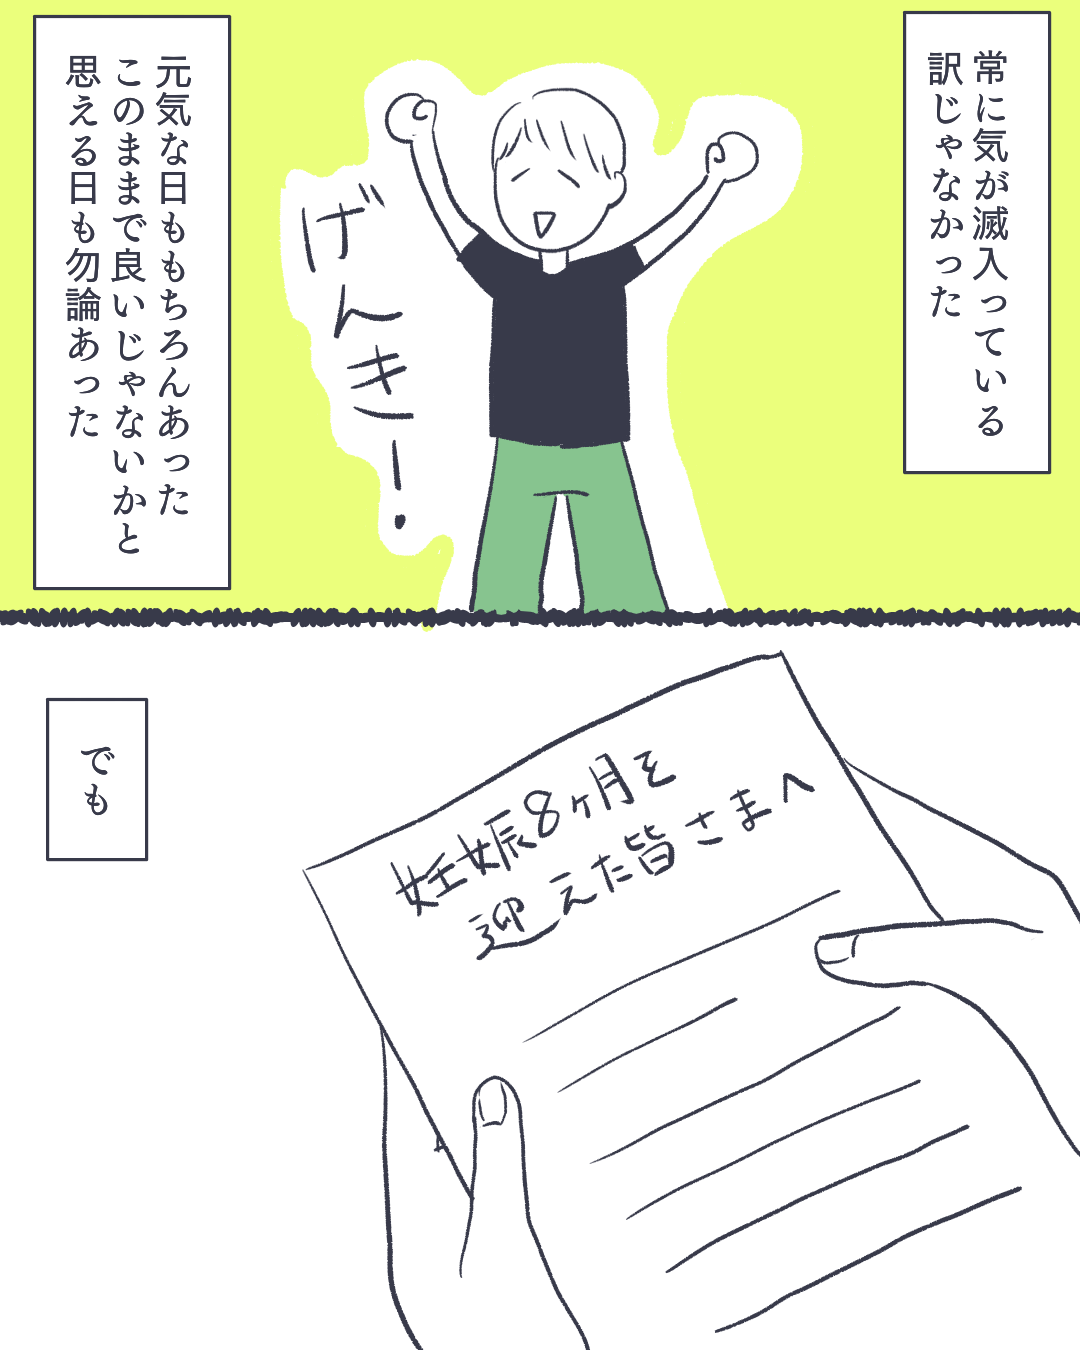 常に気が滅入っている
訳じゃなかった
げんきー！
元気な日ももちろんあった
このままで良いじゃないかと
思える日も勿論あった
でも
妊娠8ヶ月を
迎えた皆さまへ